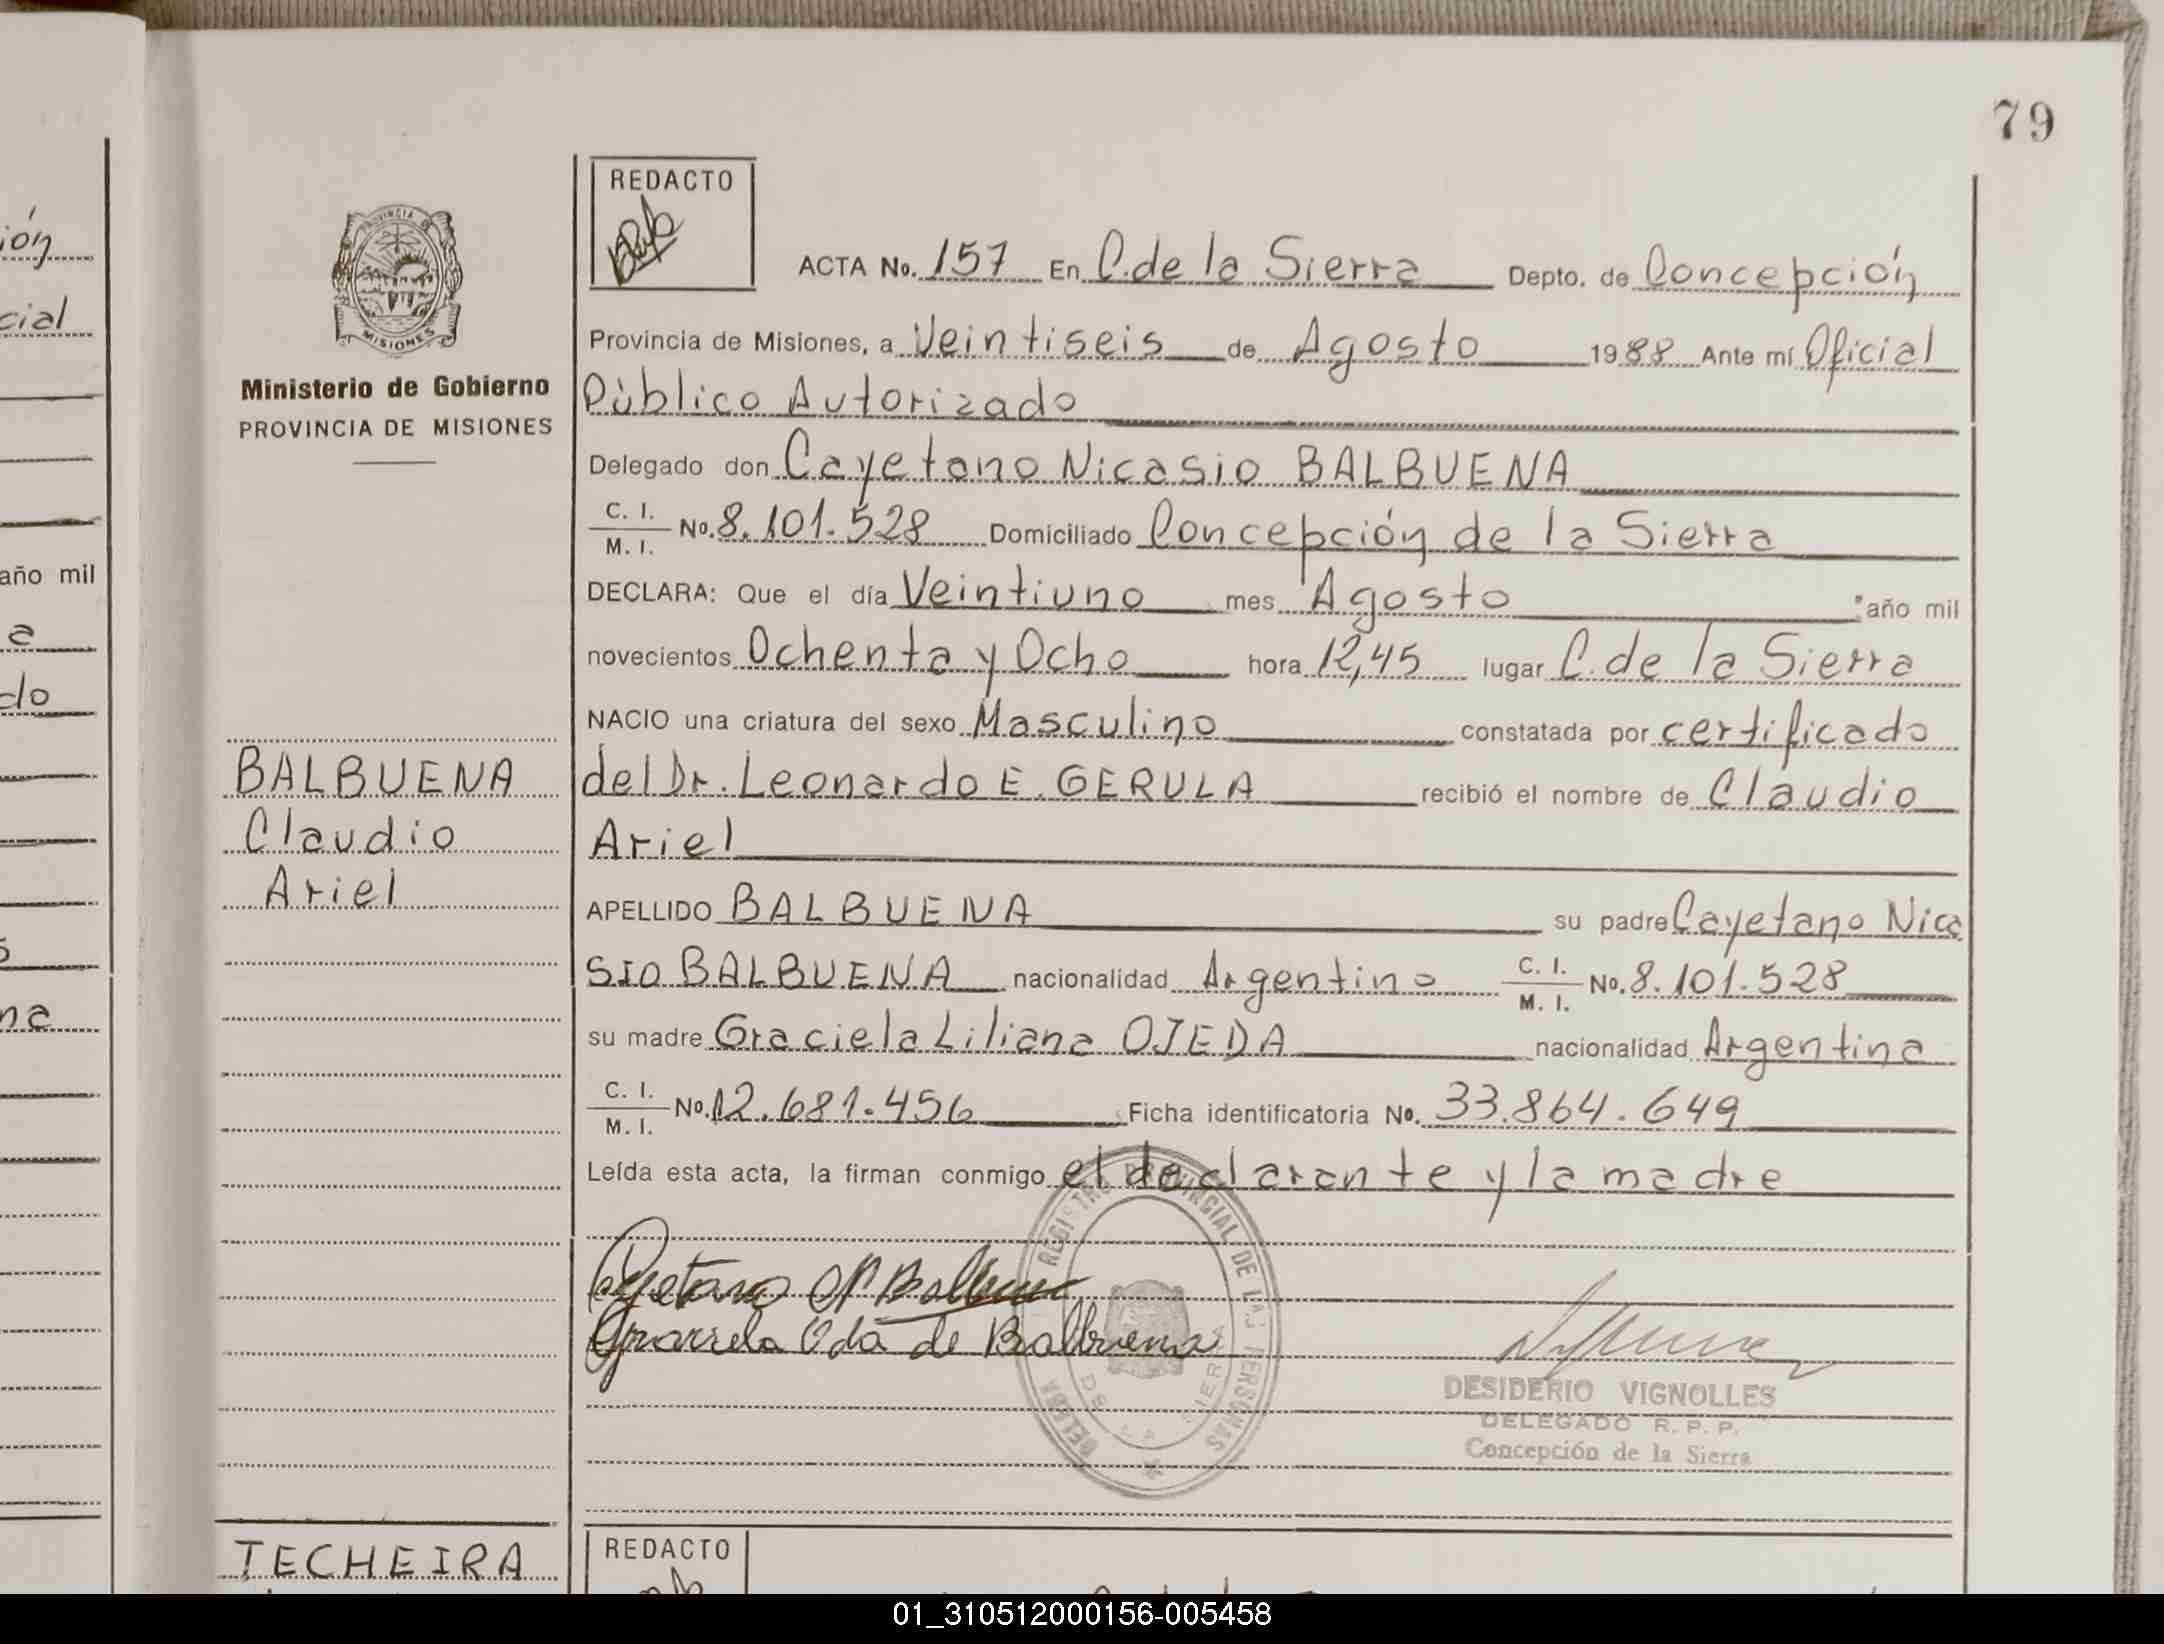 79
ión
cial
año mil
a
do
na
PROVINCIA DE
MISIONES
Ministerio de Gobierno
PROVINCIA DE MISIONES
BALBUENA
Claudio
Ariel
REDACTO
ACTA No. 157 En C. de la Sierra Depto. de Concepción
Provincia de Misiones, a Veintiseis de Agosto 1988 Ante mí Oficial
Público Autorizado
Delegado don Cayetano Nicasio BALBUENA
C. I. / M. I. No. 8.101.528 Domiciliado Concepción de la Sierra
DECLARA: Que el día Veintiuno mes Agosto año mil
novecientos Ochenta y Ocho hora 12,45 lugar C. de la Sierra
NACIO una criatura del sexo Masculino constatada por certificado
del Dr. Leonardo E. GERULA recibió el nombre de Claudio
Ariel
APELLIDO BALBUENA su padre Cayetano Nica
SIO BALBUENA nacionalidad Argentino C. I. / M. I. No. 8.101.528
su madre Graciela Liliana OJEDA nacionalidad Argentina
C. I. / M. I. No. 12.681.456 Ficha identificatoria No. 33.864.649
Leída esta acta, la firman conmigo el declarante y la madre
Cayetano N Balbuena
de Balbuena
REGISTRO PROVINCIAL DE LAS PERSONAS
DE LA SIERRA
DESIDERIO VIGNOLLES
DELEGADO R. P. P.
Concepción de la Sierra
TECHEIRA
REDACTO
01_310512000156-005458